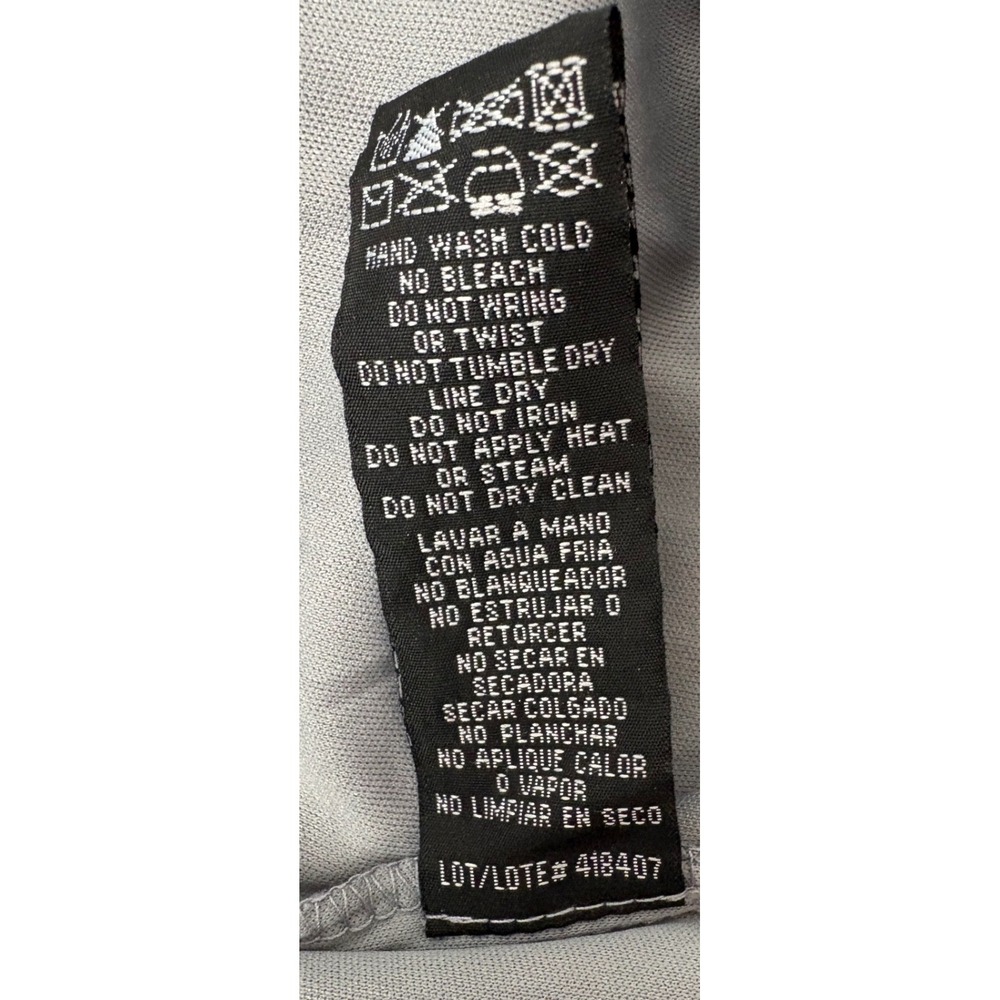 HAND WASH COLD
NO BLEACH
DO NOT WRING
OR TWIST
DO NOT TUMBLE DRY
LINE DRY
DO NOT IRON
DO NOT APPLY HEAT
OR STEAM
DO NOT DRY CLEAN
LAVAR A MANO
CON AGUA FRIA
NO BLANQUEADOR
NO ESTRUJAR O
RETORCER
NO SECAR EN
SECADORA
SECAR COLGADO
NO PLANCHAR
NO APLIQUE CALOR
O VAPOR
NO LIMPIAR EN SECO
LOT/LOTE# 418407